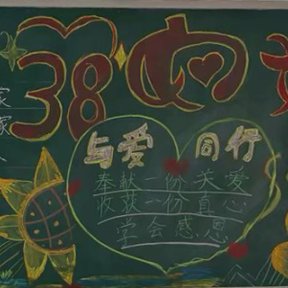 38
与爱 同行
奉献一份关爱
收获一份真心
学会感恩
家
家
人